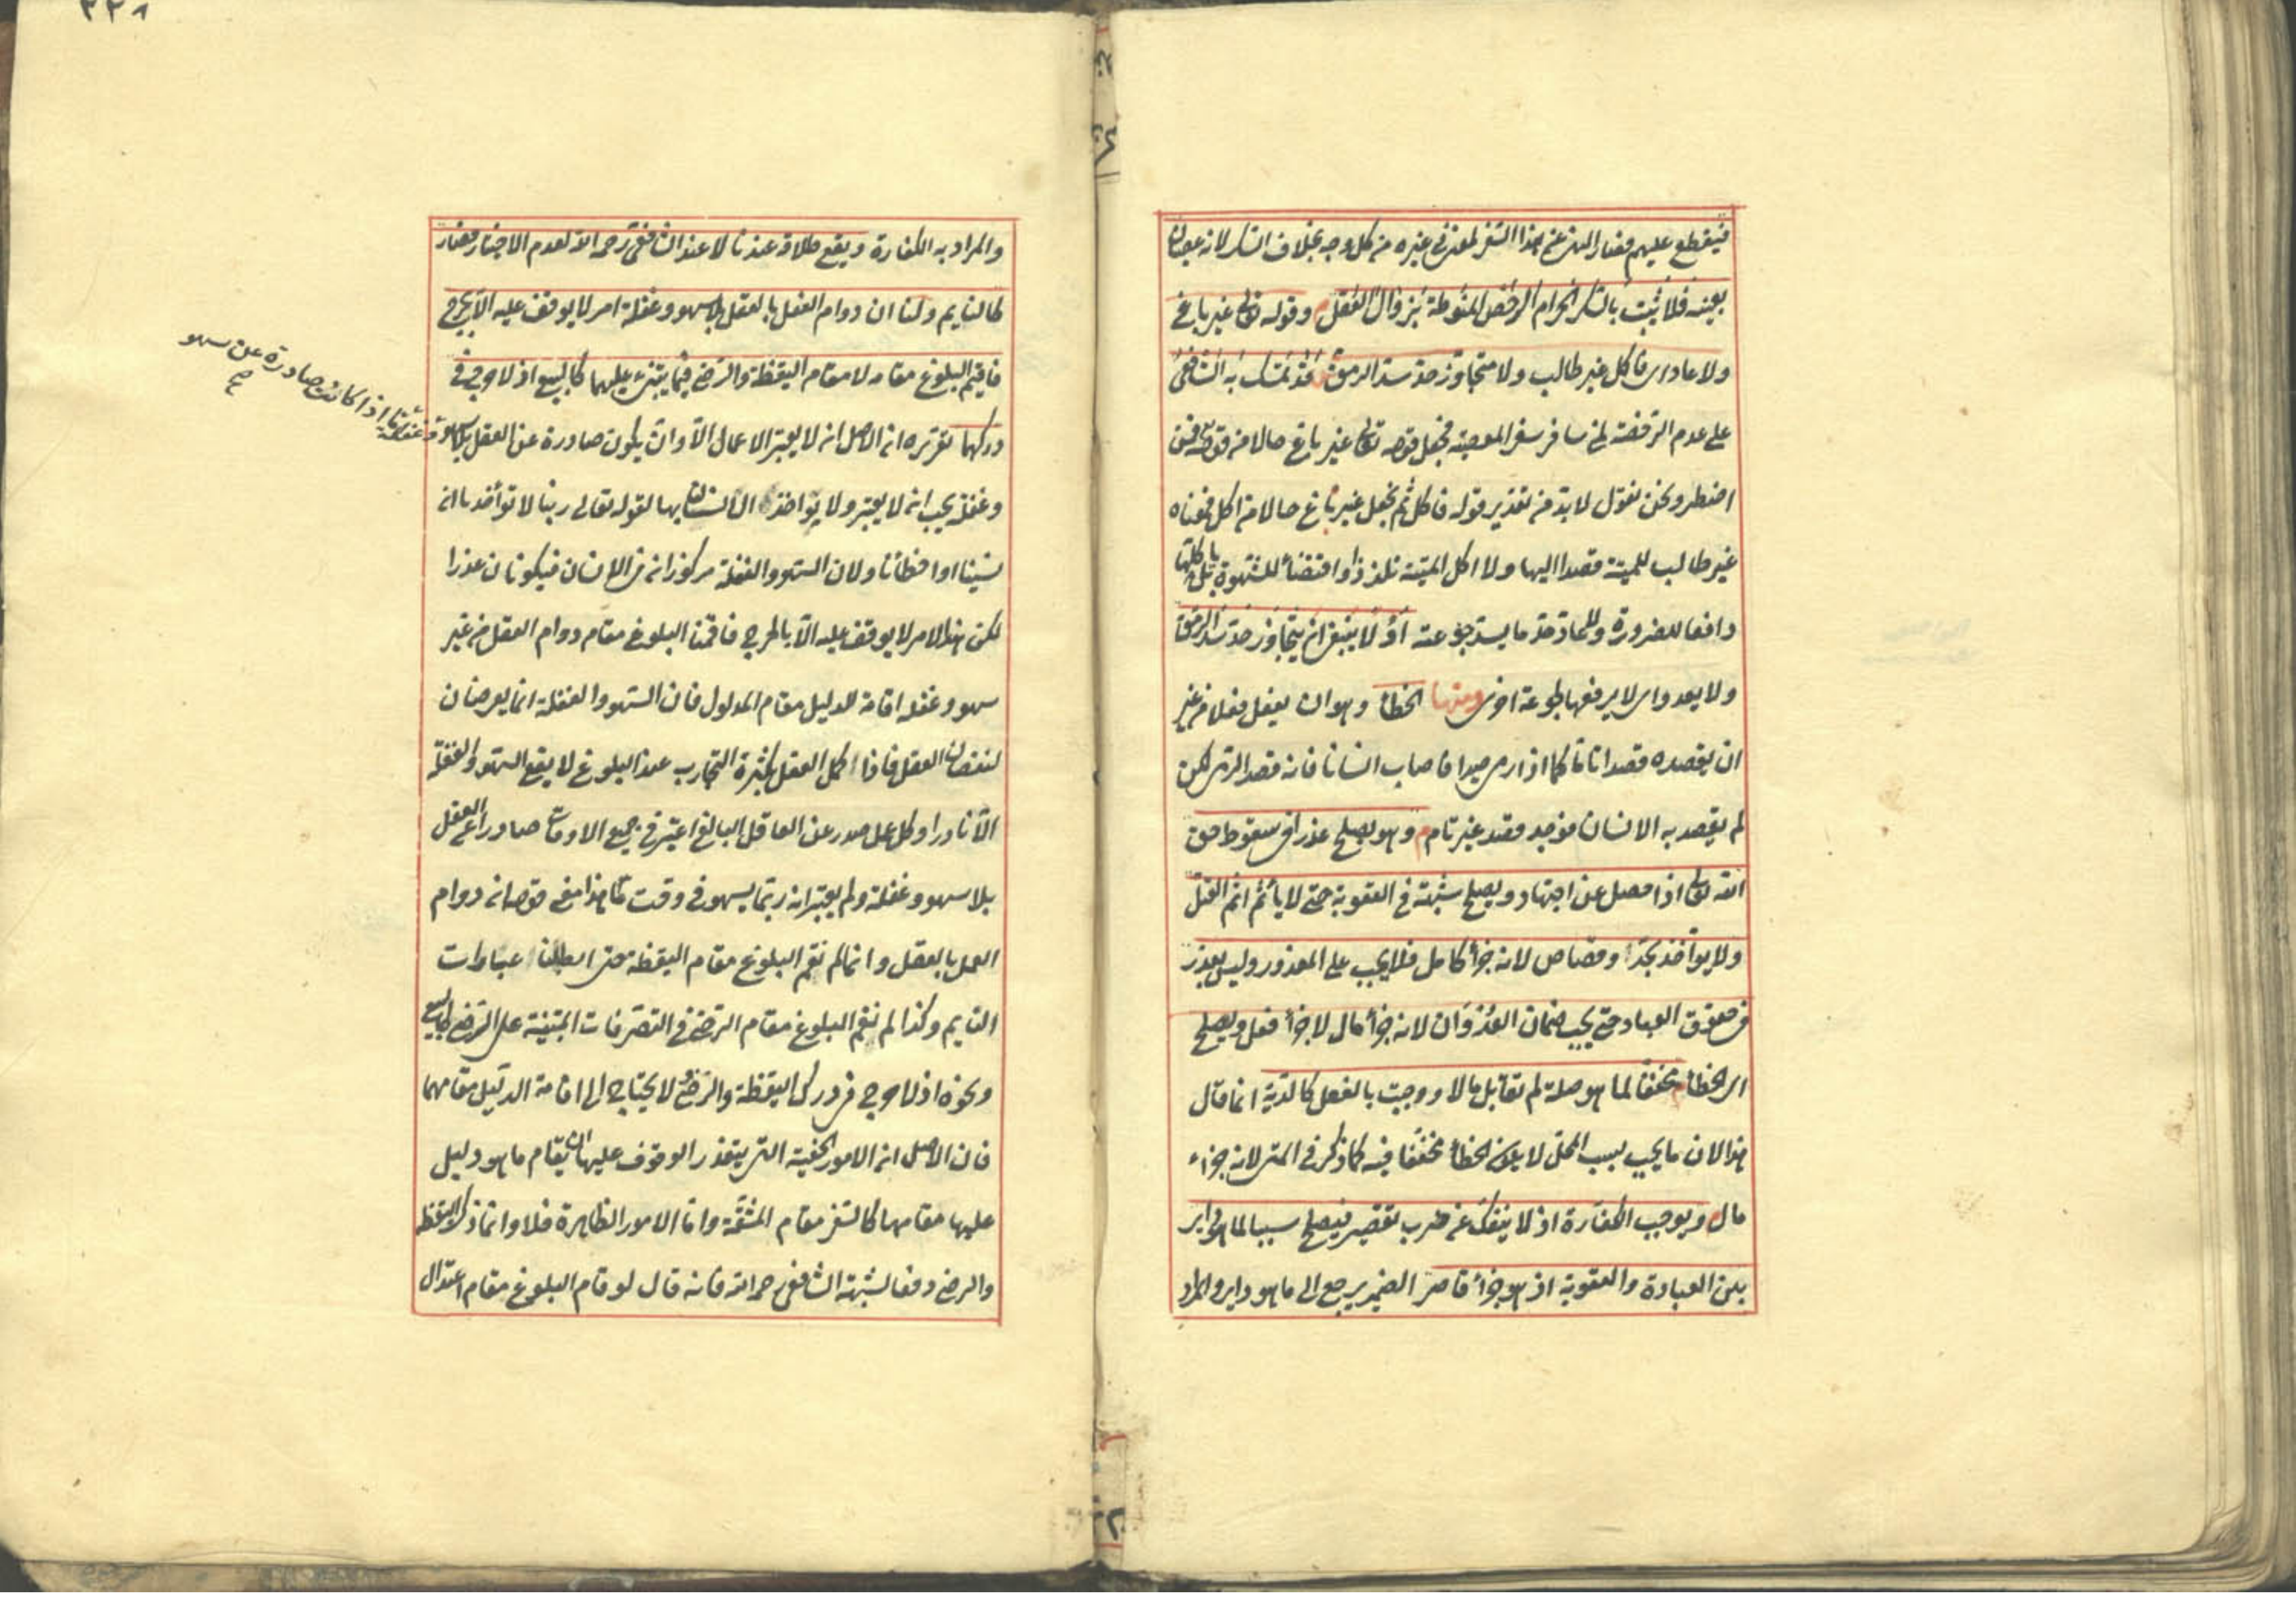 فينقطع عليهم فصار النهي عن هذا السفر لمعنى في غيره من كل وجه بخلاف السكر لانه عصيان
بعينه فلا يثبت بالسكر الحرام الرخص المنوطة بزوال العقل وقوله تعالى غير باغ
ولا عاد اى فاكل غير طالب ولا متجاوز حد سد الرمق قد تمسك به الشافعى
على عدم الرخصة لمن سافر سفر المعصية فجعل قوله تعالى غير باغ حالا من قوله فمن
اضطر ونحن نقول لا بد من تقدير قوله فاكل ثم نجعل غير باغ حالا من اكل فمعناه
غير طالب للميتة قصدا اليها ولا اكل الميتة تلذذا واقتضاء للشهوة بل ياكلها
دافعا للضرورة وللعاد حد ما يسد جوعته او لا ينبغى ان يتجاوز حد سد الرمق
ولا يعدو اى لا يرفعها لجوعة اخرى ومنها الخطأ وهو ان يفعل فعلا من غير
ان يقصده قصدا تاما كما اذا رمى صيدا فاصاب انسانا فانه قصد الرمى لكن
لم يقصد به الانسان فوجد قصد غير تام وهو يصلح عذرا فى سقوط حق
الله تعالى اذا حصل عن اجتهاد ويصلح شبهة فى العقوبة حتى لا يأثم اثم القتل
ولا يواخذ بحد او قصاص لانه جزأ كامل فلا يجب على المعذور وليس بعذر
فى حقوق العباد حتى يجب ضمان العدوان لانه جزأ مال لا جزأ فعل ويصلح
اى الخطأ مخففا لما هو صلة لم تقابل مالا ووجبت بالفعل كالدية انما قال
هذا لان ما يجب بسبب المحل لا يكون الخطأ مخففا فيه كما ذكر فى المتن لانه جزاء
مال ويوجب الكفارة اذ لا ينفك عن ضرب تقصير فيصلح سببا لما هو داير
بين العبادة والعقوبة اذ هو جزأ قاصر الضمير يرجع الى ما هو داير والمراد
والمراد به الكفارة ويقع طلاقه عندنا لا عند الشافعى رحمه الله لعدم الاختيار فصار
كالنايم ولنا ان دوام العمل بالعقل بلا سهو وغفلة امر لا يوقف عليه الا بحرج
فاقيم البلوغ مقامه لا مقام اليقظة والرضى فيما يبتنى عليهما كالبيع اذ لا حرج فى
دركهما تقريره ان الاصل انه لا يعتبر الاعمال الا وان يكون صادرة عن العقل بلا سهو
وغفلة يجب ان لا يعتبر ولا يواخذ الانسان بها لقوله تعالى ربنا لا تواخذنا ان
نسينا او اخطأنا ولان السهو والغفلة مركوزان فى الانسان فيكونان عذرا
لكن هذا الامر لا يوقف عليه الا بالحرج فاقمنا البلوغ مقام دوام العقل من غير
سهو وغفلة اقامة للدليل مقام المدلول فان السهو والغفلة انما يعرضان
لنقصان العقل فاذا كمل العقل بكثرة التجارب عند البلوغ لا يقع السهو والغفلة
الا نادرا وكل عمل صدر عن العاقل البالغ اعتبر فى جميع الاوقات صادرا عن العقل
بلا سهو وغفلة ولم يعتبر انه ربما يسهو فى وقت ما هذا معنى قوله ان دوام
العمل بالعقل وانما لم نقم البلوغ مقام اليقظة حتى ابطلنا عبارات
النايم وكذا لم نقم البلوغ مقام الرضى فى التصرفات المبتنية على الرضى كالبيع
ونحوه اذ لا حرج فى درك اليقظة والرضى لا يحتاج الى اقامة الدليل مقامهما
فان الاصل ان الامور الخفية التى يتعذر الوقوف عليها ان يقام ما هو دليل
عليها مقامها كالسفر مقام المشقة واما الامور الظاهرة فلا وانما ذكر اليقظة
والرضى دفعا لشبهة الشافعى رحمه الله فانه قال لو قام البلوغ مقام اعتدال
اذا كانت صادرة عن سهو
صح
٢٢٨